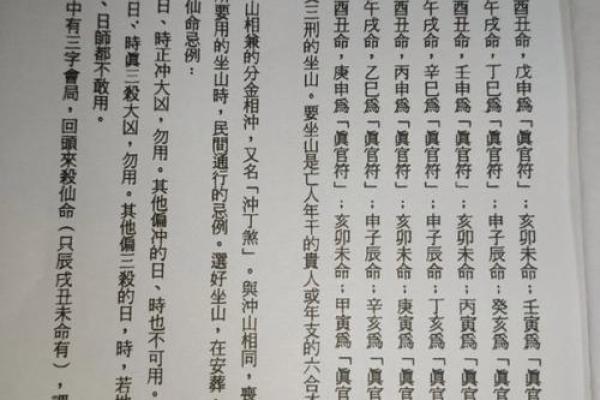 酉丑命，戊申為「眞官符」；亥卯未命；壬寅為「眞官
午戌命，丁巳為「眞官符」；申子辰命；癸亥為「眞官
酉丑命，壬申為「眞官符」；亥卯未命；丙寅為「眞官
午戌命，辛巳為「眞官符」；申子辰命；丁亥為「眞官
酉丑命，丙申為「眞官符」；亥卯未命；庚寅為「眞官
午戌命，乙巳為「眞官符」；申子辰命；辛亥為「眞官
酉丑命，庚申為「眞官符」；亥卯未命；甲寅為「眞官
三刑的坐山。要坐山是亡人年干的貴人或年支的六合
山相兼的分金相沖，又名「沖丁煞」。與沖山相同，喪
要用的坐山時，民間通行的忌例。選好坐山，在安葬。
仙命忌例：
日、時正沖大凶，勿用。其他偏沖的日、時也不可用。
日、時眞三殺大凶，勿用。其他偏三殺的日，時，若
、日師都不敢用。
中有三字會局，回頭來殺仙命（只辰戌丑未命有），